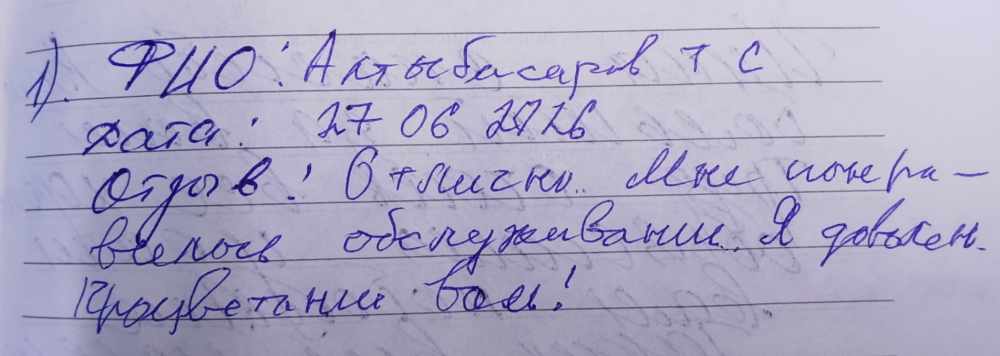 1). ФИО: Алтыбасаров Т С
Дата: 27 06 2026
Отзыв: Отлично. Мне понра-
вилось обслуживание. Я доволен.
Процветание вам!